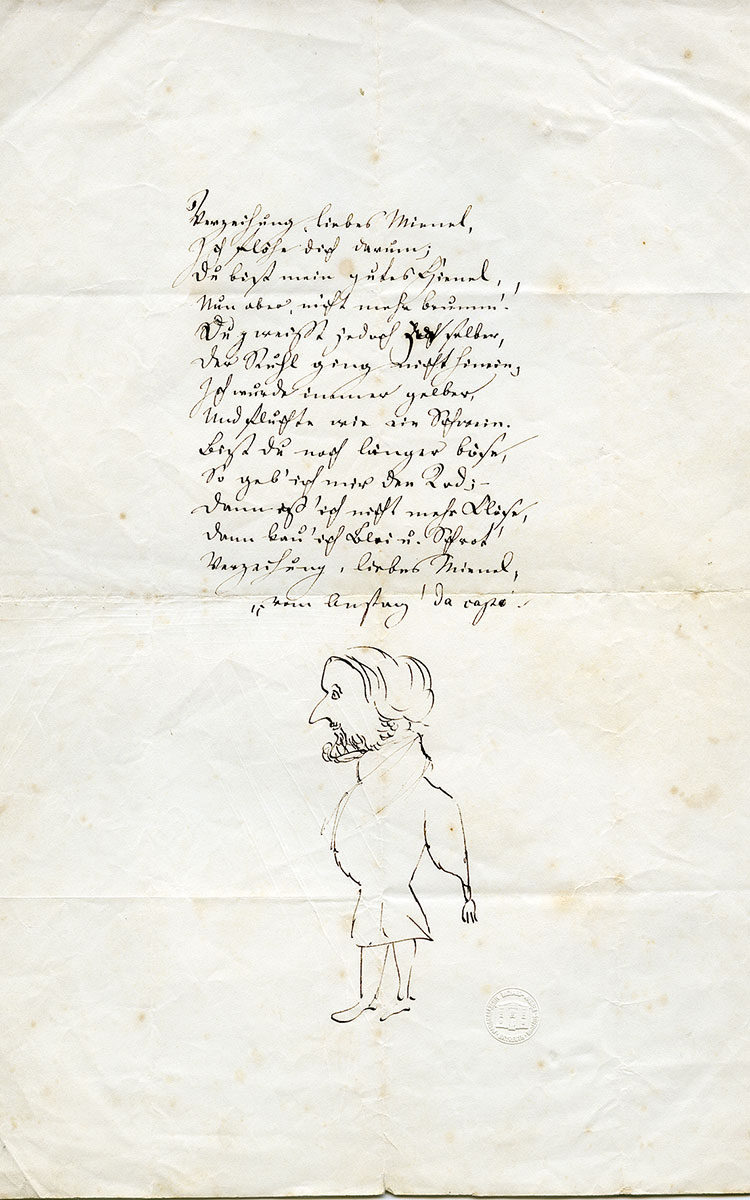 Verzeihung, liebes Mienel,
Ich flöhe dich darum;
Du bist mein gutes Hienel,
Nun aber, nicht mehr brumm'!
Du weisst jedoch selber,
Der Stuhl ging nicht hinein;
Ich wurde immer gelber,
Und fluchte wie ein Schwein.
Bist du noch länger böse,
So geb' ich mir den Tod; –
Dann ess' ich nicht mehr Klöse,
Dann kau' ich Blei u. Schrot!
Verzeihung, liebes Mienel,
„vom Anfang' da capo'.